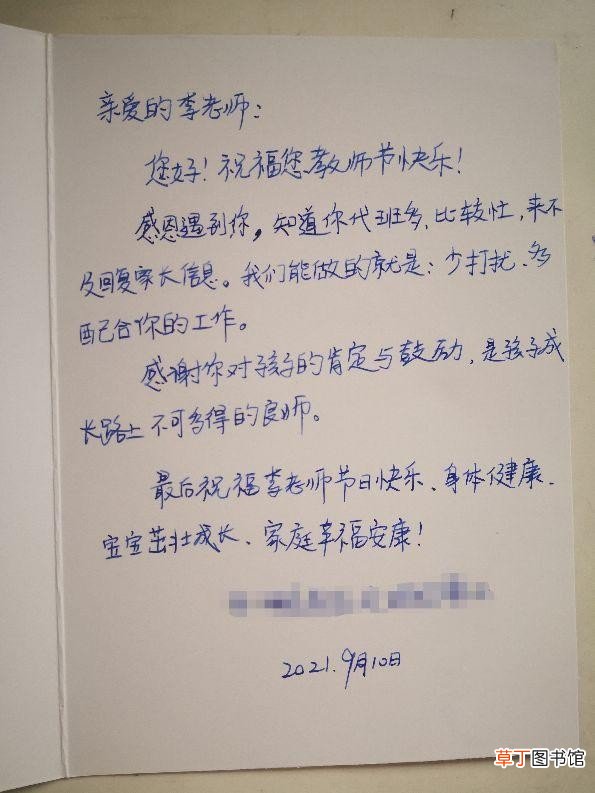 亲爱的李老师：
您好！祝福您教师节快乐！
感恩遇到你，知道你代班多、比较忙，来不
及回复家长信息。我们能做的就是：少打扰、多
配合你的工作。
感谢你对孩子的肯定与鼓励，是孩子成
长路上不可多得的良师。
最后祝福李老师节日快乐、身体健康、
宝宝茁壮成长、家庭幸福安康！
2021.9月10日
草丁图书馆